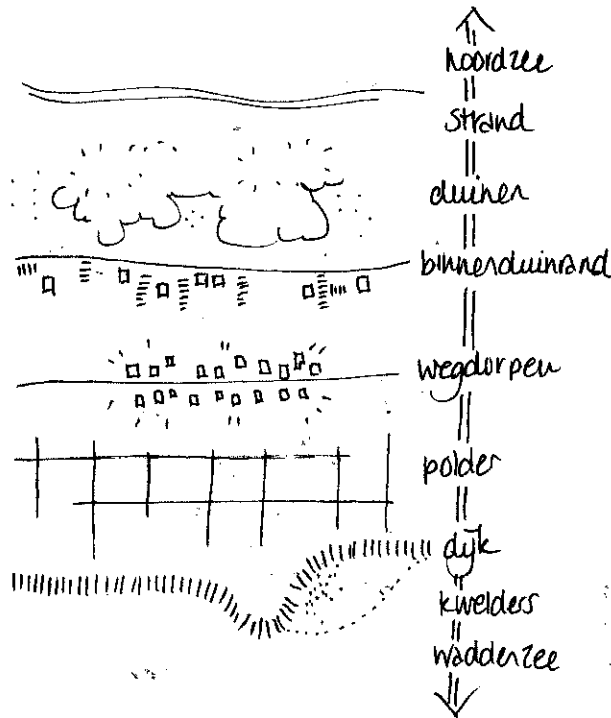 noordzee
strand
duinen
binnenduinrand
wegdorpen
polder
dijk
kwelders
waddenzee